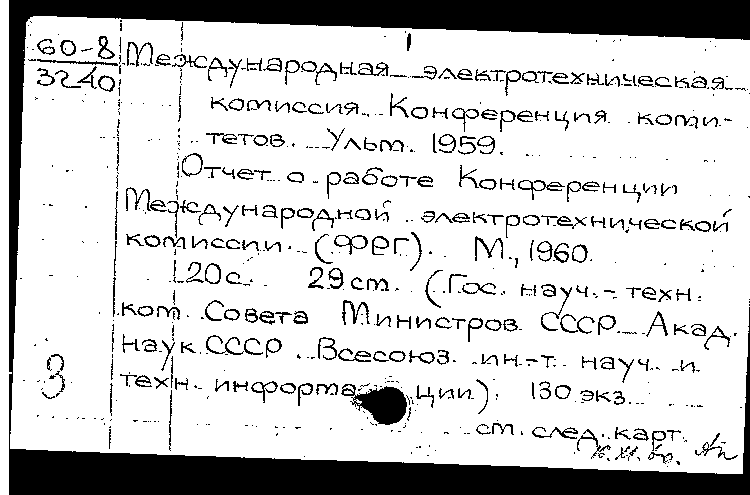 60-8
3240
Международная электротехническая
комиссия. Конференция коми-
тетов. Ульм. 1959.
Отчет о работе Конференции
Международной электротехнической
комиссии. (ФРГ). М., 1960.
20 с. 29 см. (Гос. науч.-техн.
ком. Совета Министров СССР. Акад.
наук СССР. Всесоюз. ин-т. науч. и
техн. информации). 130 экз.
З
см. след. карт.